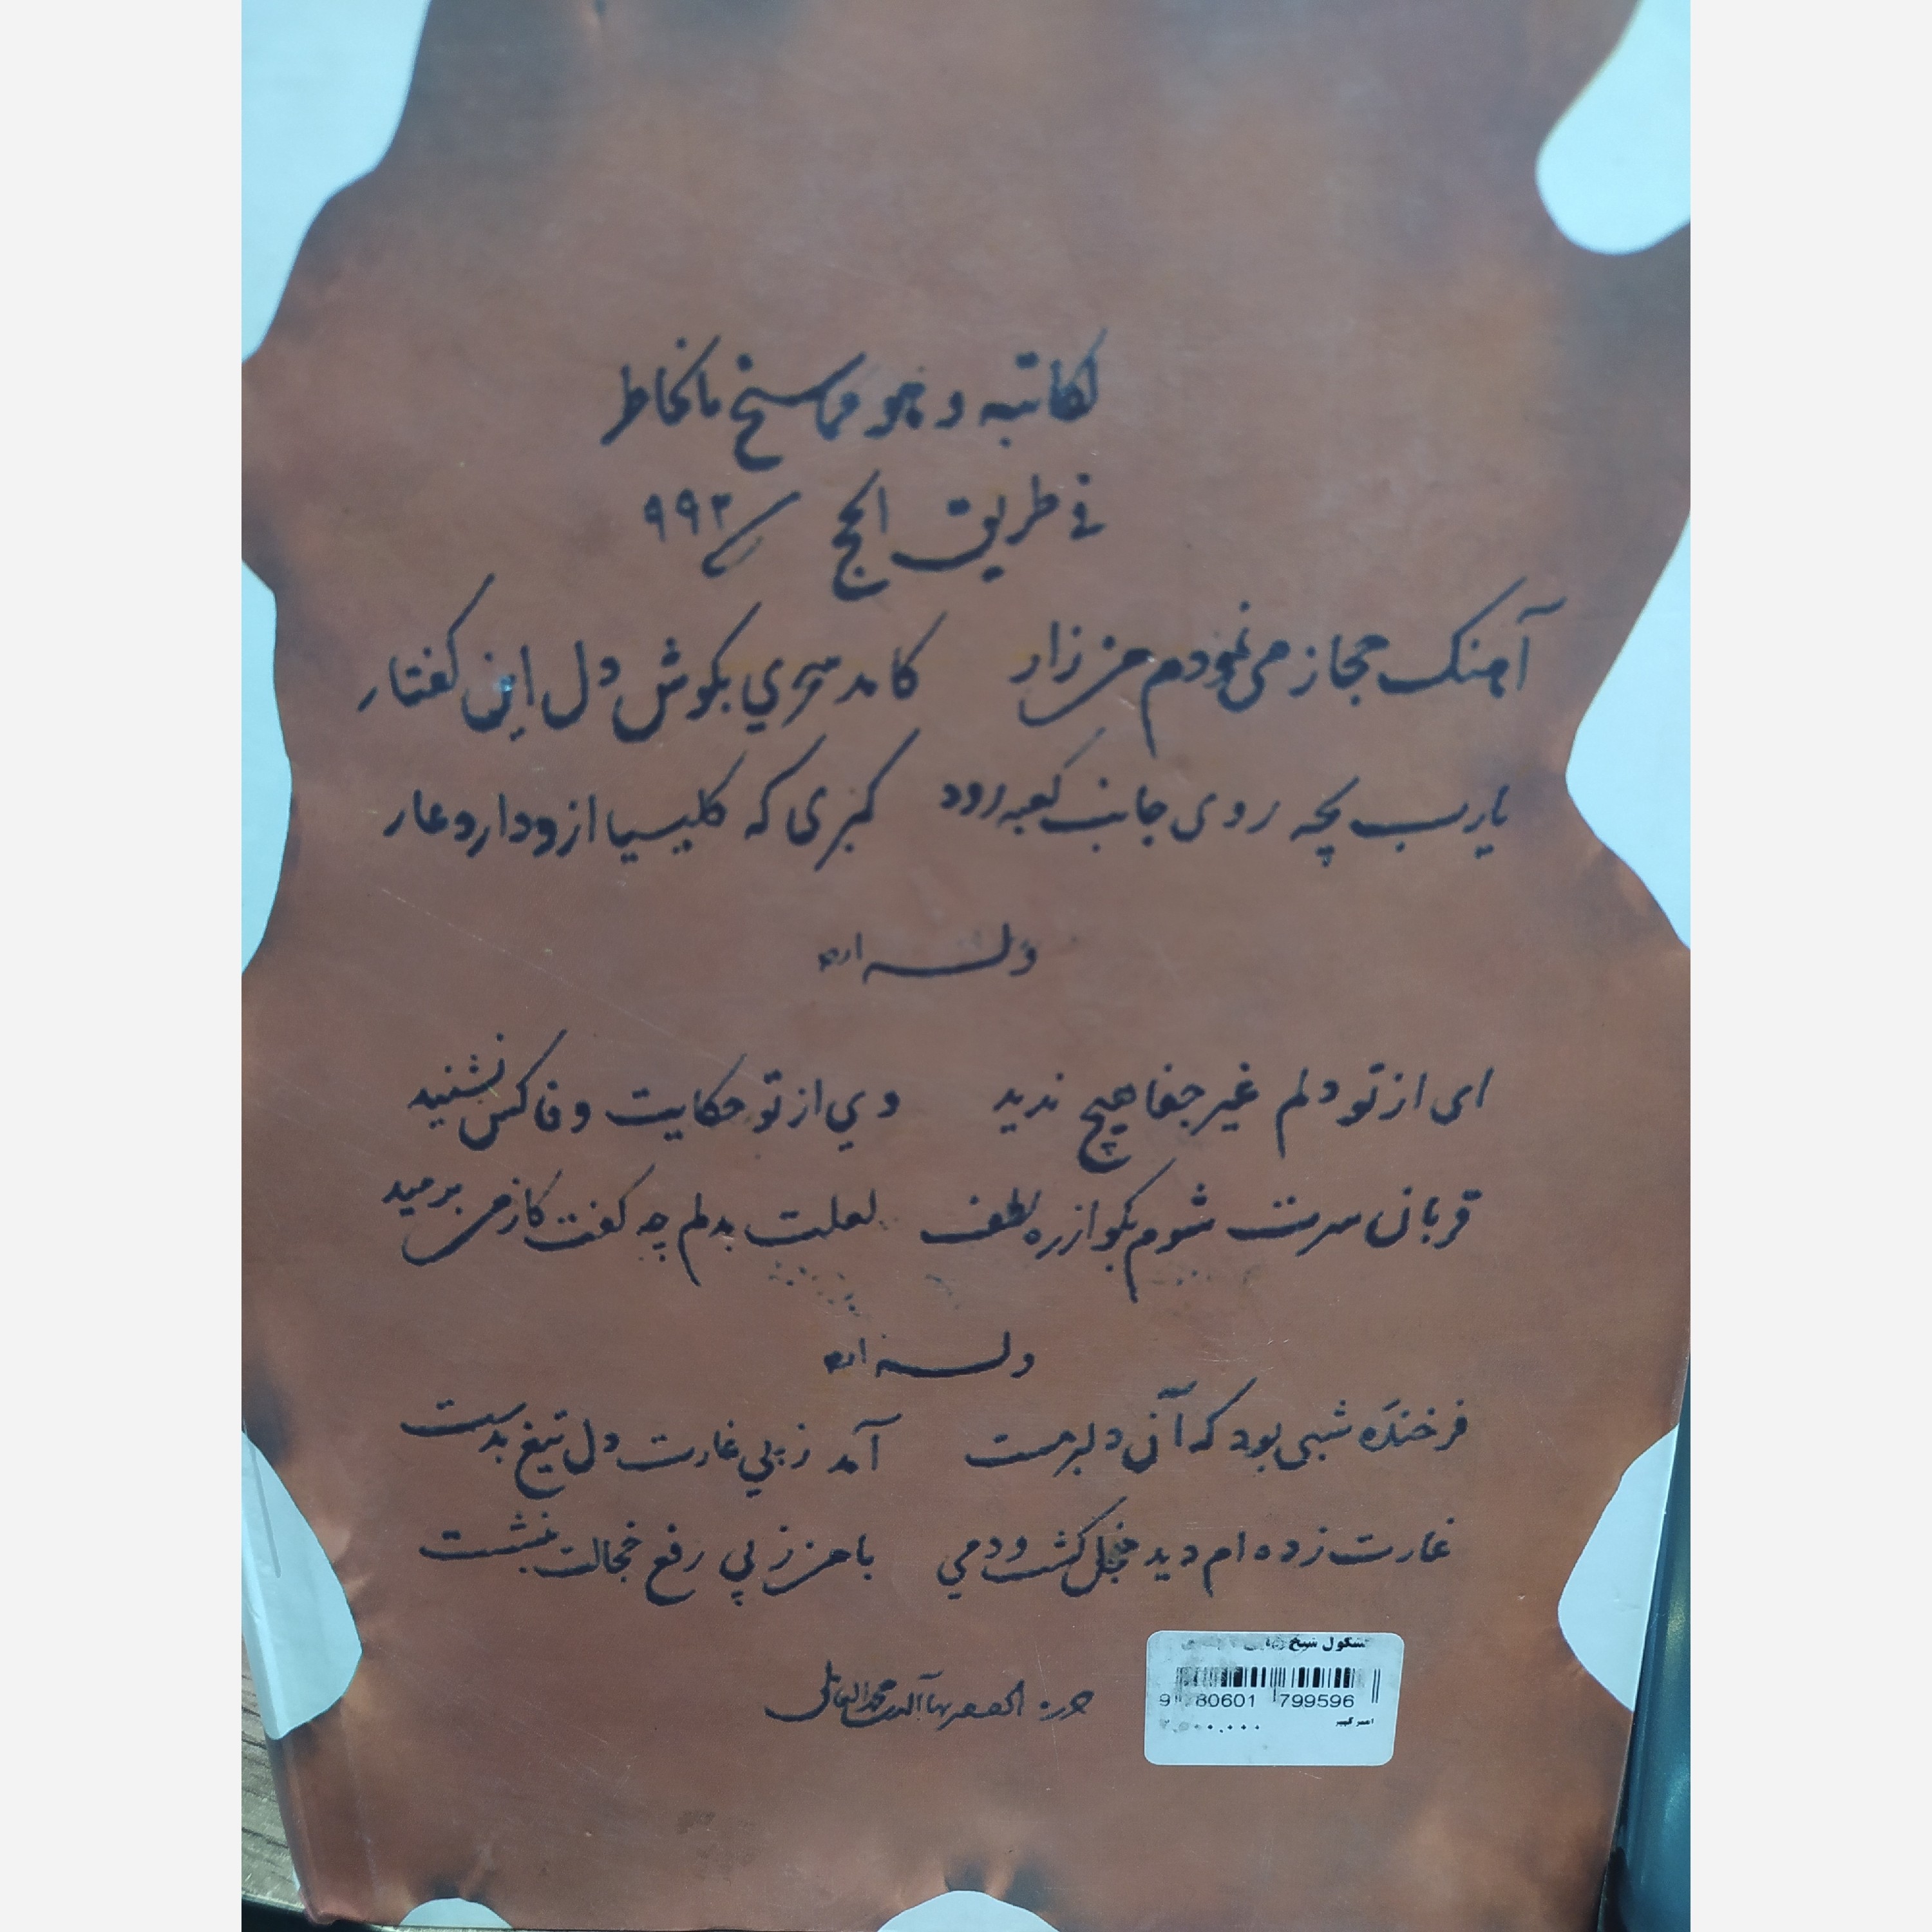 لکاتبه و هو مما سنح بالخاطر
في طريق الحج سنة ٩٩٢
آهنک حجاز می نمودم من زار کامد سحري بکوش دل این کفتار
یارب بچه روی جانب کعبه رود کبری که کلیسیا ازو دارد عار
وله ايضا
ای از تو دلم غیر جفا هیچ ندید وي از تو حکایت وفا کس نشنید
قربان سرت شوم بکو از ره لطف لعلت بدلم چه کفت کز من برمید
وله ايضا
فرخنده شبی بود که آن دلبر مست آمد ز پي غارت دل تیغ بدست
غارت زده ام دید خجل کشت و دمي با من ز پي رفع خجالت بنشست
بهاء الدین محمد العاملي
کشکول شیخ بهایی
799596
امیرکبیر